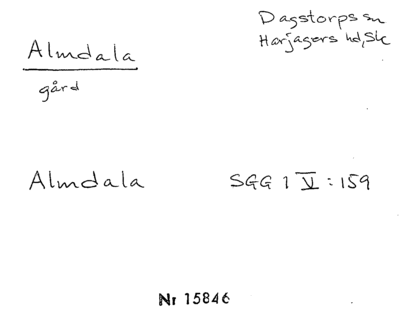 Dagstorps sn
Harjagers hd, Sk
Almdala
gård
Almdala SGG 1 V : 159
Nr 15846